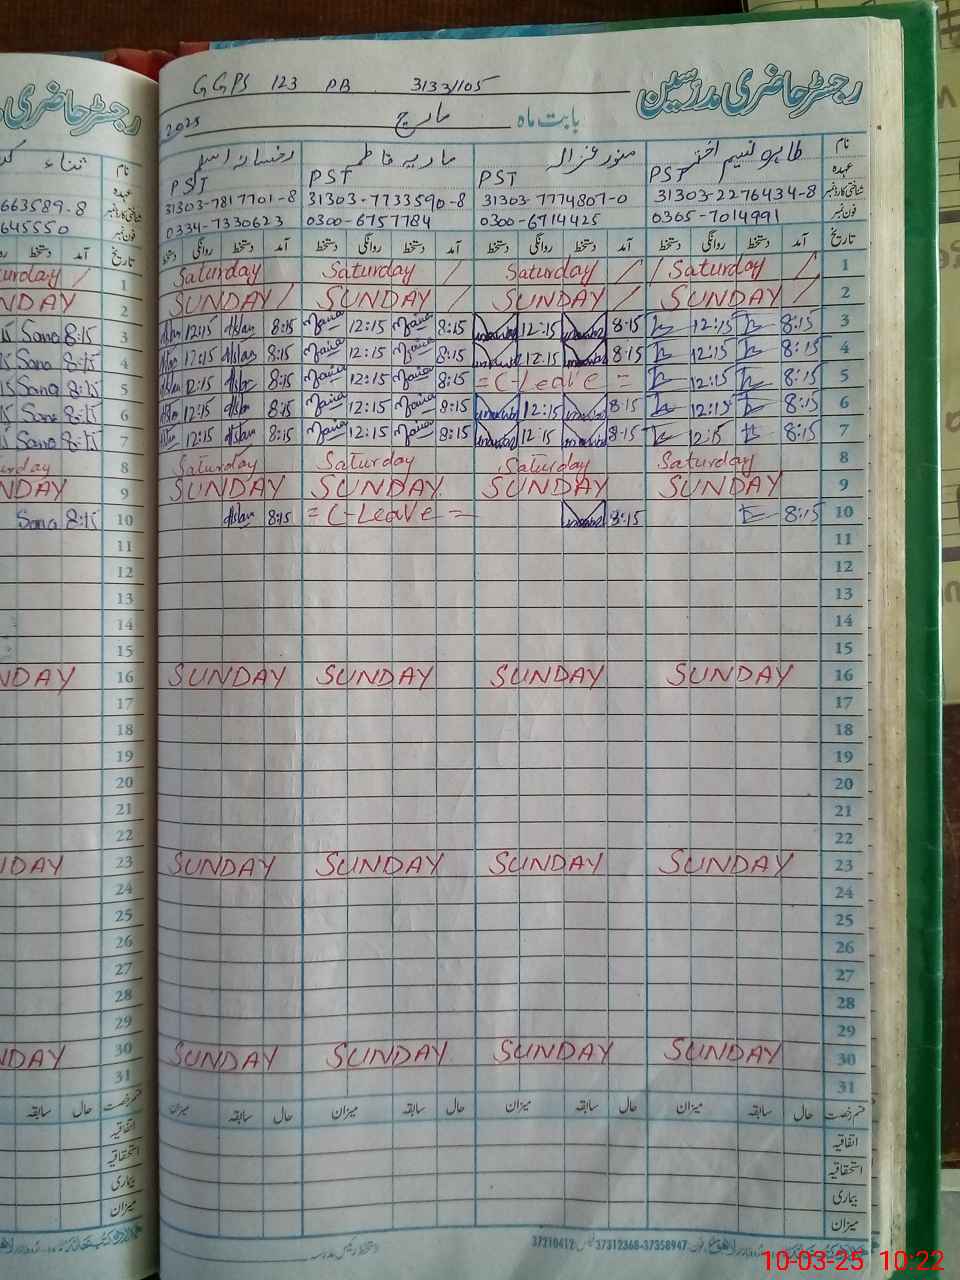 رجسٹر حاضری مدرسین
GGPS 123 PB 31331105
بابت ماہ مارچ 2025
نام طاہرہ نسیم اختر منور غزالہ ماریہ فاطمہ رخسانہ اسلم ثناء
عہدہ PST PST PST PST
شناختی کارڈ نمبر 31303-2276434-8 31303-7774807-0 31303-7733590-8 31303-7817701-8 663589-8
فون نمبر 0305-7014991 0300-6714425 0300-6757784 0334-7330623 645550
تاریخ آمد دستخط روانگی دستخط آمد دستخط روانگی دستخط آمد دستخط روانگی دستخط آمد دستخط روانگی دستخط تاریخ
1 Saturday Saturday Saturday Saturday 1 urday
2 SUNDAY SUNDAY SUNDAY SUNDAY 2 NDAY
3 8:15 12:15 8:15 12:15 8:15 Maria 12:15 Maria 8:15 Aslam 12:15 Aslam 3 8:15 Sana 15
4 8:15 12:15 8:15 12:15 8:15 Maria 12:15 Maria 8:15 Aslam 12:15 Aslam 4 8:15 Sana 15
5 8:15 12:15 = C-Leave = 8:15 Maria 12:15 Maria 8:15 Aslam 12:15 Aslam 5 8:15 Sana 15
6 8:15 12:15 8:15 12:15 8:15 Maria 12:15 Maria 8:15 Aslam 12:15 Aslam 6 8:15 Sana 15
7 8:15 12:15 8:15 12:15 8:15 Maria 12:15 Maria 8:15 Aslam 12:15 Aslam 7 8:15 Sana 15
8 Saturday Saturday Saturday Saturday 8 urday
9 SUNDAY SUNDAY SUNDAY SUNDAY 9 NDAY
10 8:15 8:15 = C-Leave = 8:15 Aslam 10 8:15 Sana
11 11
12 12
13 13
14 14
15 15
16 SUNDAY SUNDAY SUNDAY SUNDAY 16 NDAY
17 17
18 18
19 19
20 20
21 21
22 22
23 SUNDAY SUNDAY SUNDAY SUNDAY 23 NDAY
24 24
25 25
26 26
27 27
28 28
29 29
30 SUNDAY SUNDAY SUNDAY SUNDAY 30 NDAY
31 31
قسم رخصت حال سابقہ میزان حال سابقہ میزان حال سابقہ میزان حال سابقہ میزان قسم رخصت حال سابقہ
اتفاقیہ اتفاقیہ
استحقاقیہ استحقاقیہ
بیماری بیماری
میزان میزان
دستخط رئیس مدرسہ
37312368-37358947 37210412
10-03-25 10:22